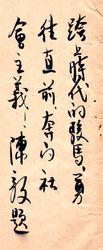 跨上时代的骏马,勇
往直前,奔向社
会主义! 陈毅题